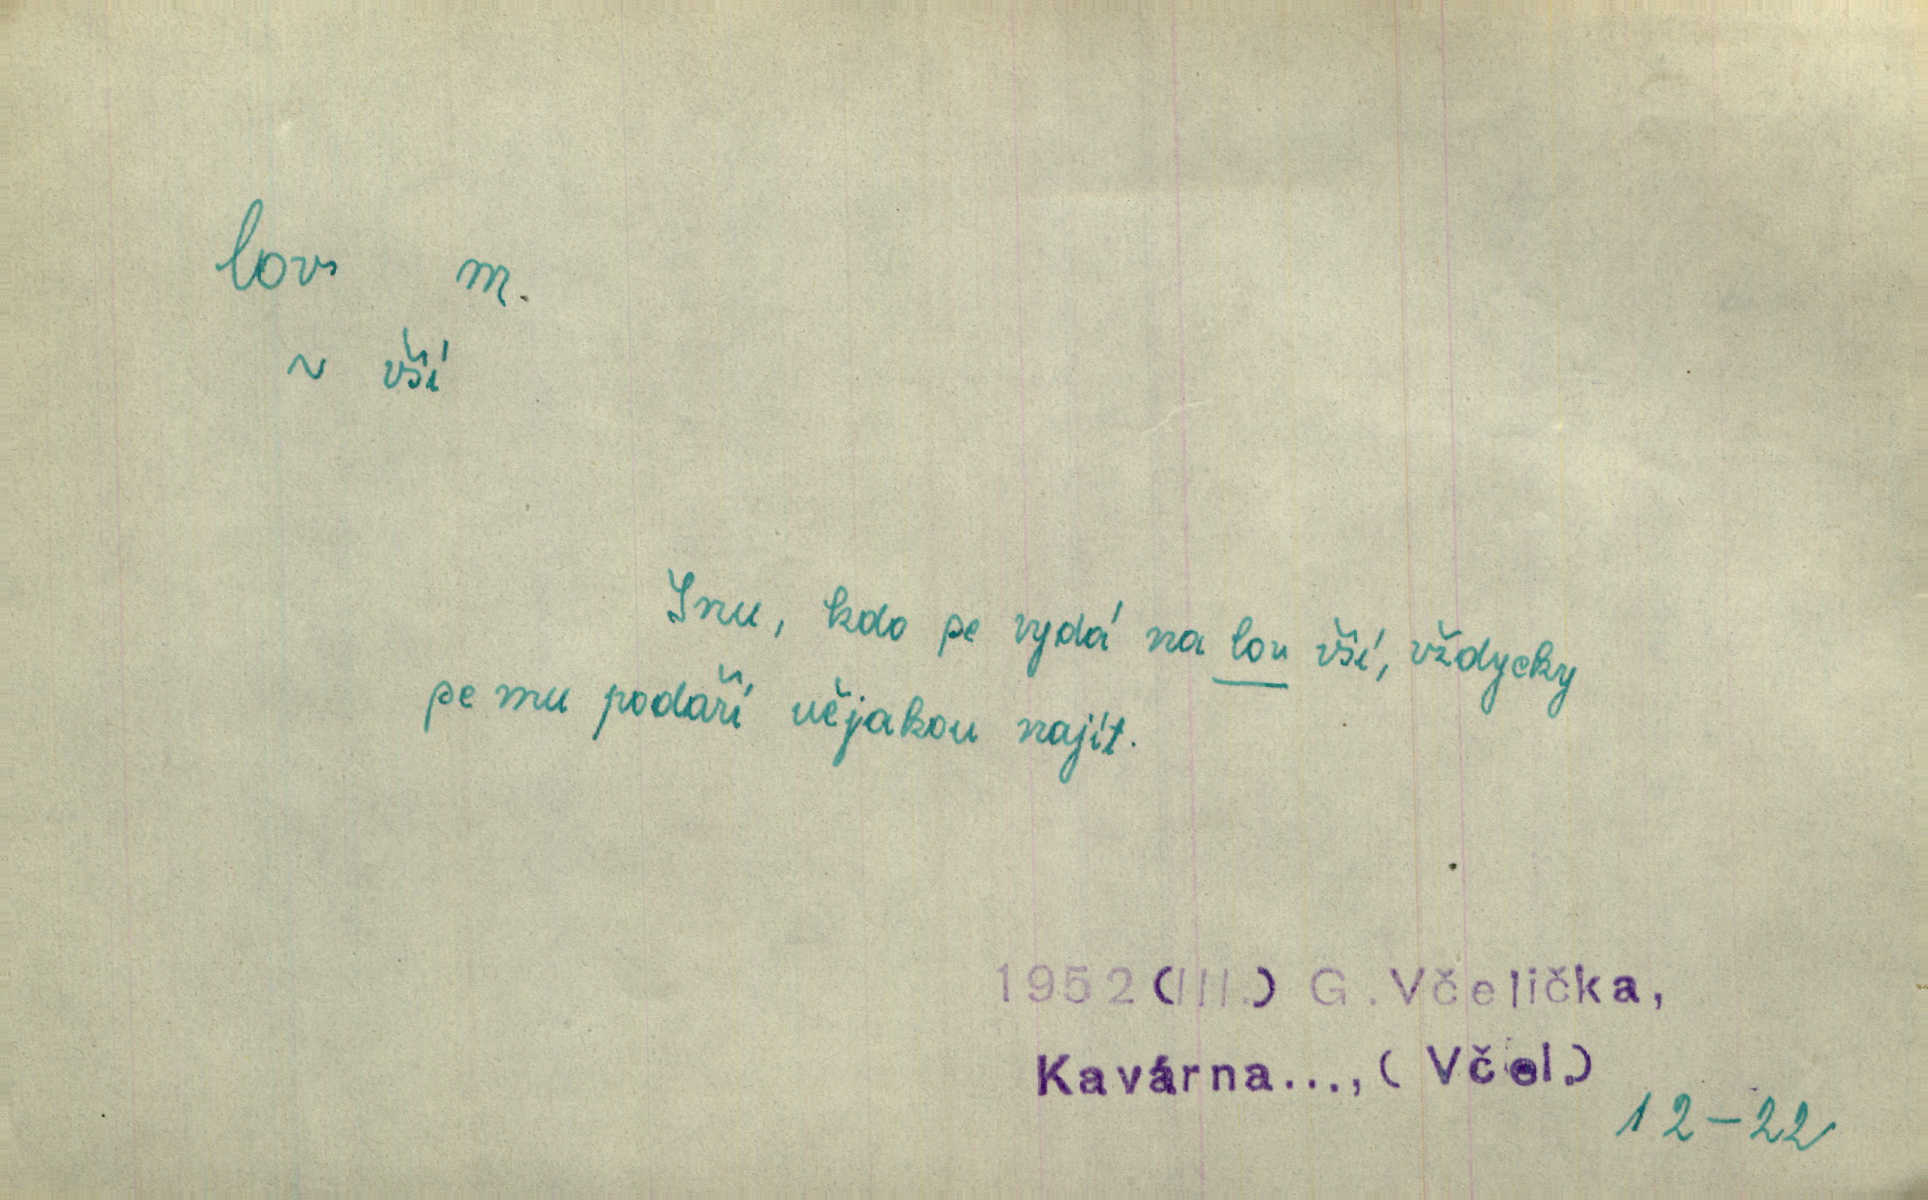 lov m.
~ vší
Inu, kdo se vydá na lov vší, vždycky
se mu podaří nějakou najít.
1952(III.) G.Včelička,
Kavárna...,( Včel.)
12-22